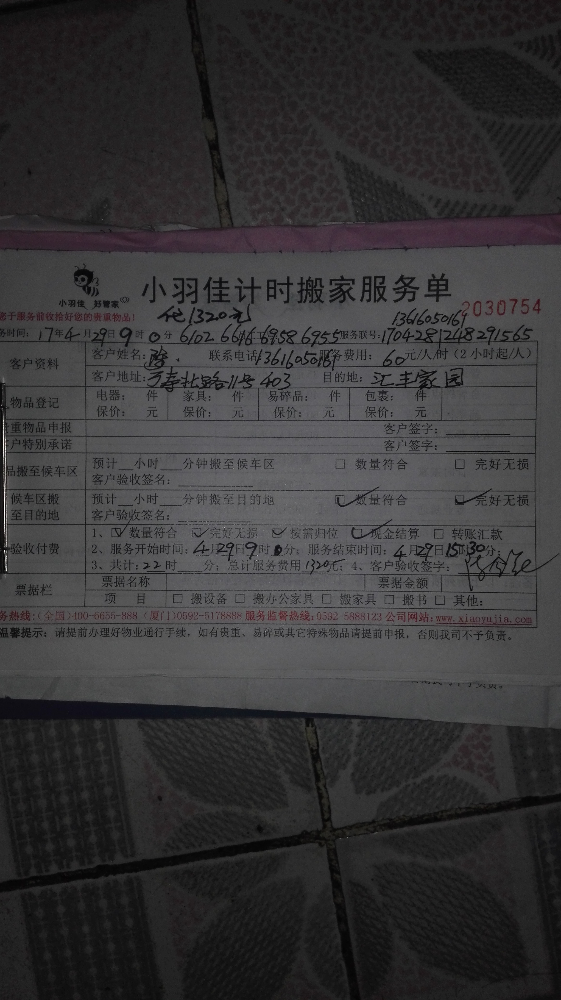 小羽佳 好管家
小羽佳计时搬家服务单
2030754
您于服务前收拾好您的贵重物品!
化1320元
13616050169
务时间: 17年4月29日9时0分 6102 6616 6958 6955 服务联号: 170428124829 1565
客户资料 客户姓名: 陈. 联系电话 服务费用: 60元/人/时(2小时起/人)
客户地址: 万寿北路11号403 目的地: 汇丰家园
物品登记 电器: 件 家具: 件 易碎品: 件 包裹: 件
保价: 元 保价: 元 保价: 元 保价: 元
贵重物品申报 客户签字:
客户特别承诺 客户签字:
品搬至候车区 预计__小时__分钟搬至候车区 □ 数量符合 □ 完好无损
客户验收签名:
候车区搬至目的地 预计__小时__分钟搬至目的地 ☑ 数量符合 ☑ 完好无损
客户验收签名:
验收付费 1、☑ 数量符合 ☑ 完好无损 ☑ 按需归位 ☑ 现金结算 □ 转账汇款
2、服务开始时间: 4月29日9时0分; 服务结束时间: 4月29日15时30分;
3、共计: 22时__分; 总计服务费用1320元; 4、客户验收签字:
票据栏 票据名称 票据金额
项 目 □ 搬设备 □ 搬办公家具 □ 搬家具 □ 搬书 □ 其他:
务热线:(全国)400-6655-888 (厦门)0592-5178888 服务监督热线:0592-5888123 公司网站:www.xiaoyujia.com
温馨提示: 请提前办理好物业通行手续, 如有贵重、易碎或其它特殊物品请提前申报, 否则我司不予负责。